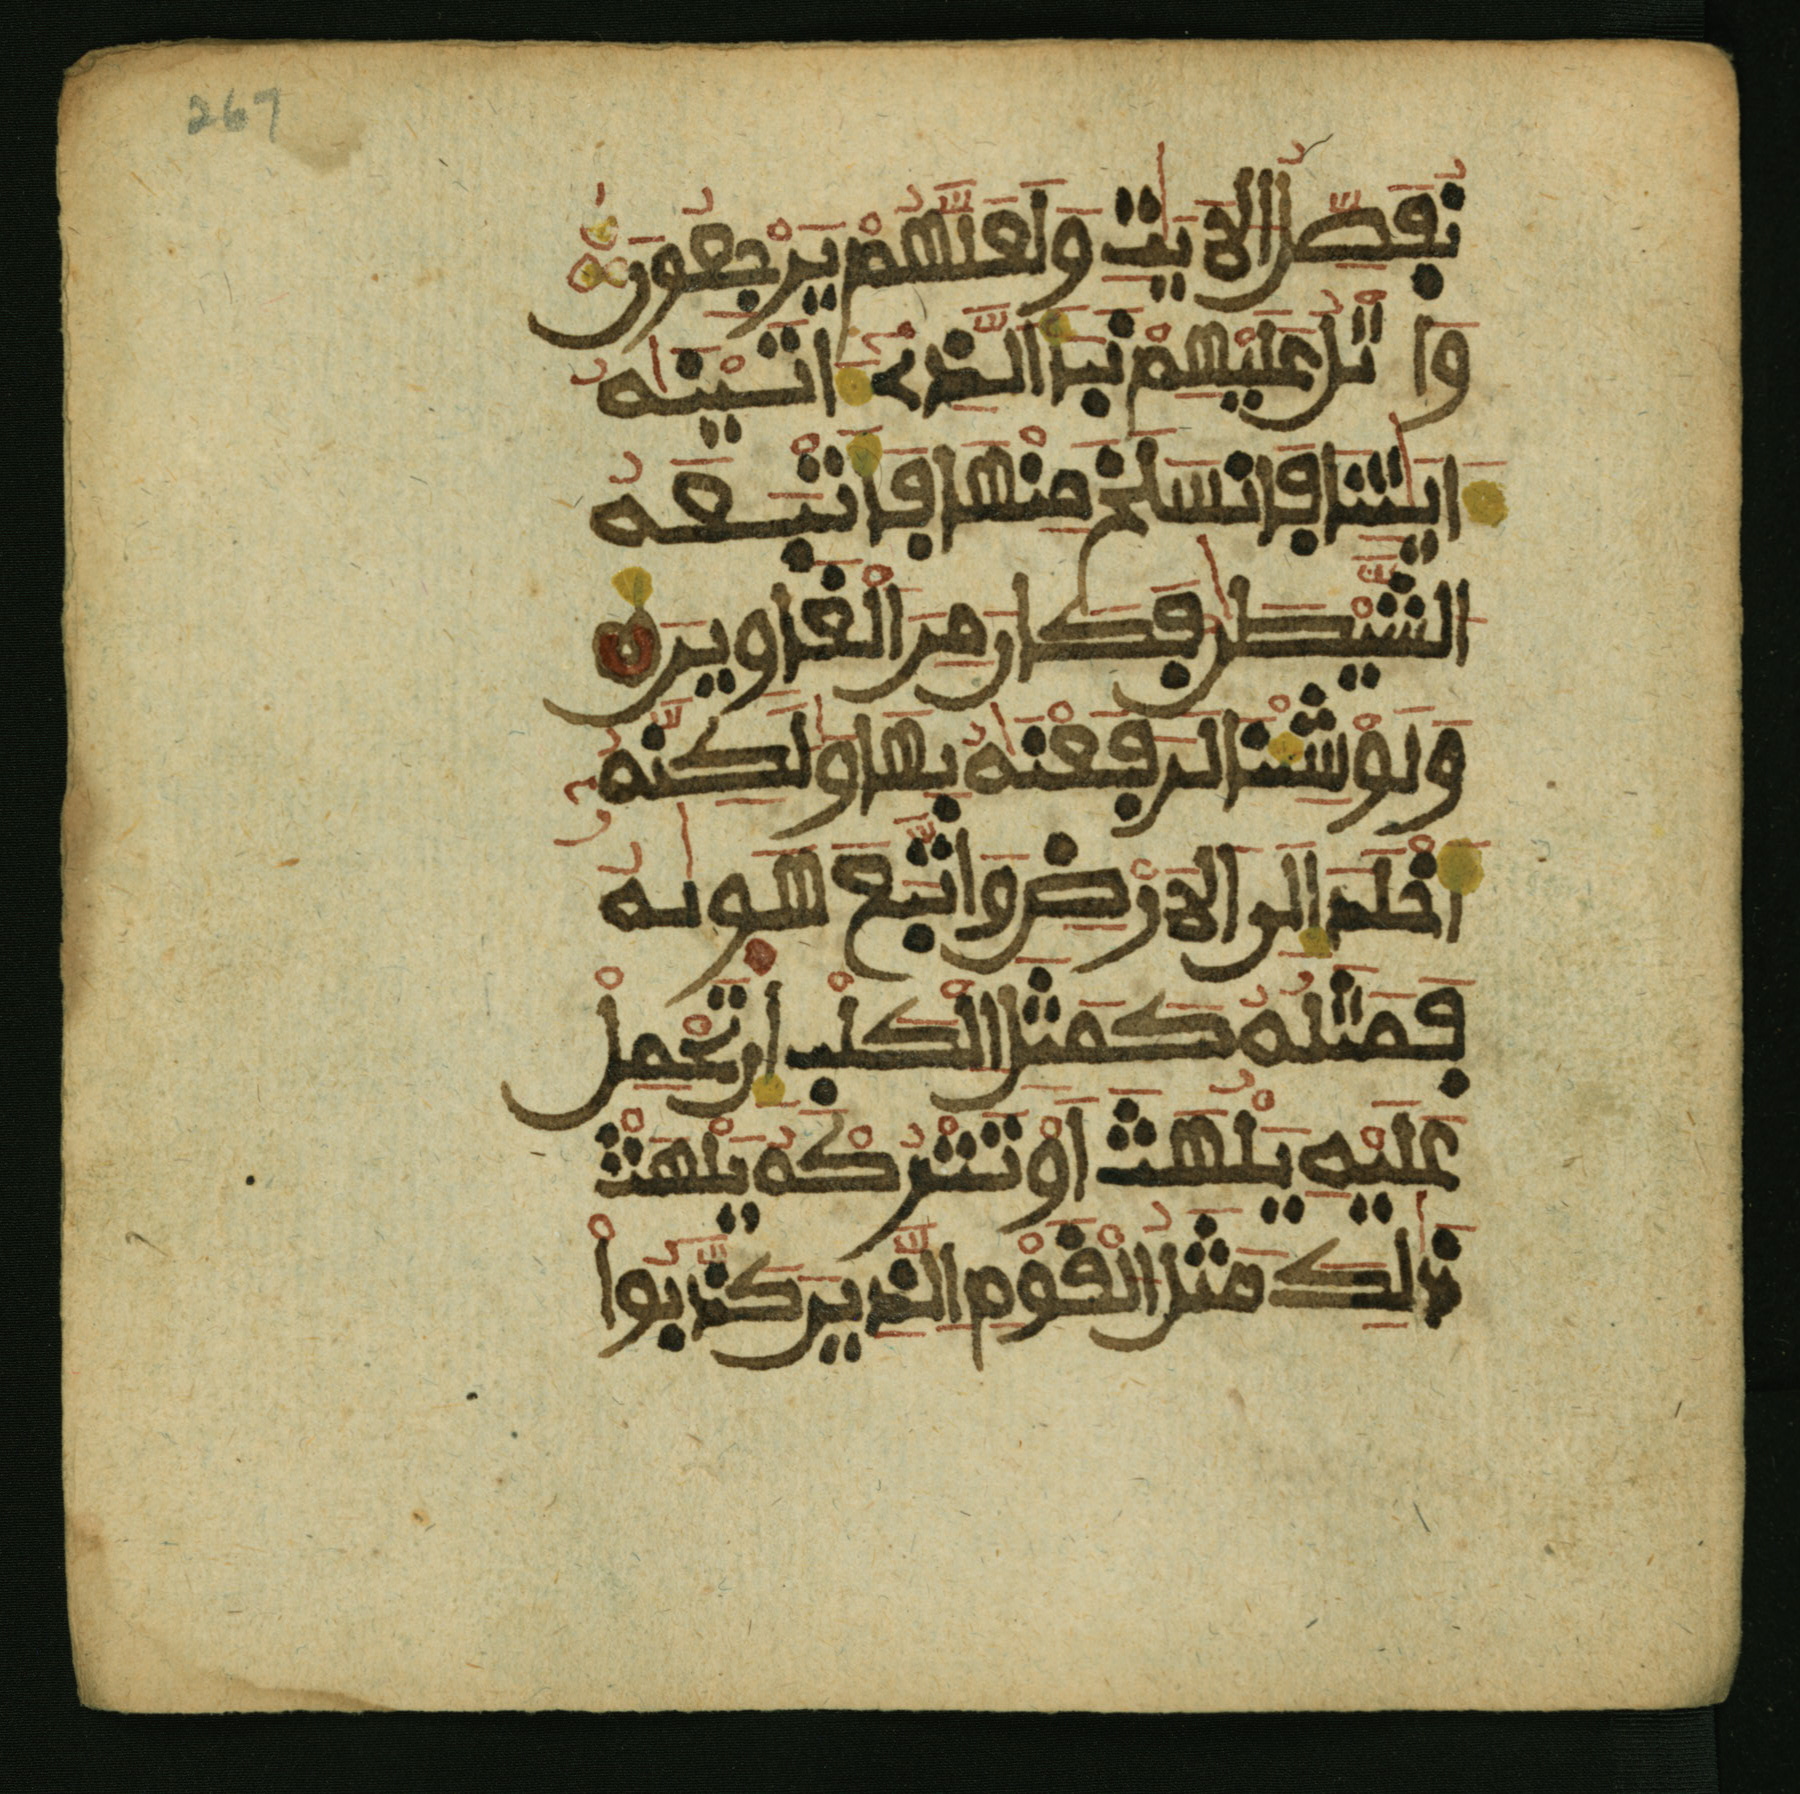 267
نُفَصِّلُ الْاَيٰتِ وَلَعَلَّهُمْ يَرْجِعُونَ
وَاتْلُ عَلَيْهِمْ نَبَأَ الَّذِے ءَاتَيْنٰهُ
ءَايٰتِنَا فَانسَلَخَ مِنْهَا فَأَتْبَعَهُ
الشَّيْطٰنُ فَكَانَ مِنَ الْغَاوِينَ
وَلَوْ شِئْنَا لَرَفَعْنٰهُ بِهَا وَلٰكِنَّهُ
أَخْلَدَ إِلَى الْاَرْضِ وَاتَّبَعَ هَوىٰهُ
فَمَثَلُهُ كَمَثَلِ الْكَلْبِ إِن تَحْمِلْ
عَلَيْهِ يَلْهَثْ أَوْ تَتْرُكْهُ يَلْهَثْ
ذٰلِكَ مَثَلُ الْقَوْمِ الَّذِينَ كَذَّبُواْ